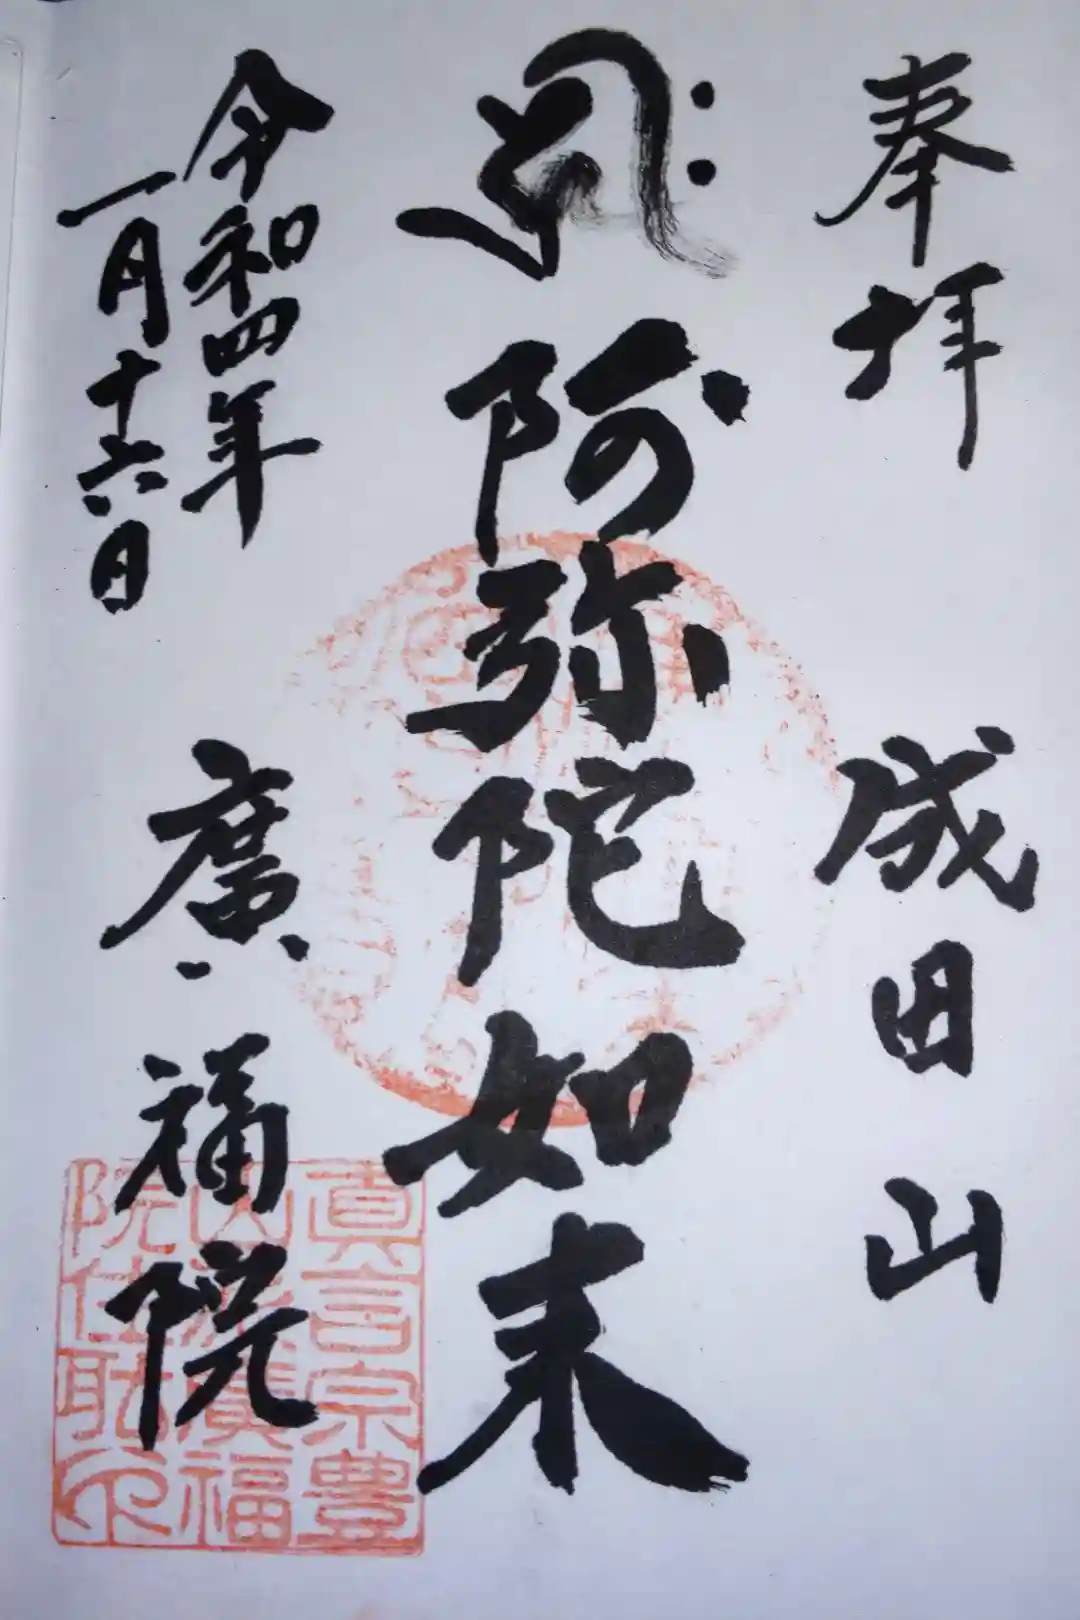 奉拝
成田山
阿弥陀如来
令和四年
一月十六日
廣福院
真言宗豊
山派廣福
院住職印